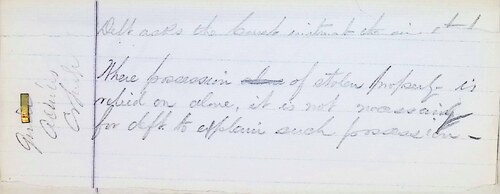 Deft asks the Court instruct the
Where possession alone of stolen property is
relied on alone, it is not necessary
for deft to explain such possession -